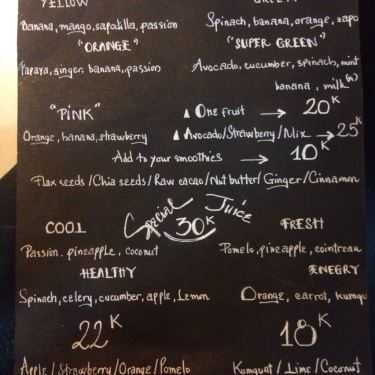 YELLOW
Banana, mango, sapodilla, passion
Spinach, banana, orange, sapo
"ORANGE"
"SUPER GREEN"
Papaya, ginger, banana, passion
Avocado, cucumber, spinach, mint
banana, milk
"PINK"
▲ One fruit → 20K
Orange, banana, strawberry
▲ Avocado/Strawberry/Mix → 25K
Add to your smoothies → 10K
Flax seeds/Chia seeds/Raw cacao/Nut butter/Ginger/Cinnamon
Special Juice
30K
COOL
FRESH
Passion, pineapple, coconut
Pomelo, pineapple, cointreau
HEALTHY
ENEGRY
Spinach, celery, cucumber, apple, Lemon
Orange, carrot, kumqu
22K
18K
Apple/Strawberry/Orange/Pomelo
Kumquat/Lime/Coconut